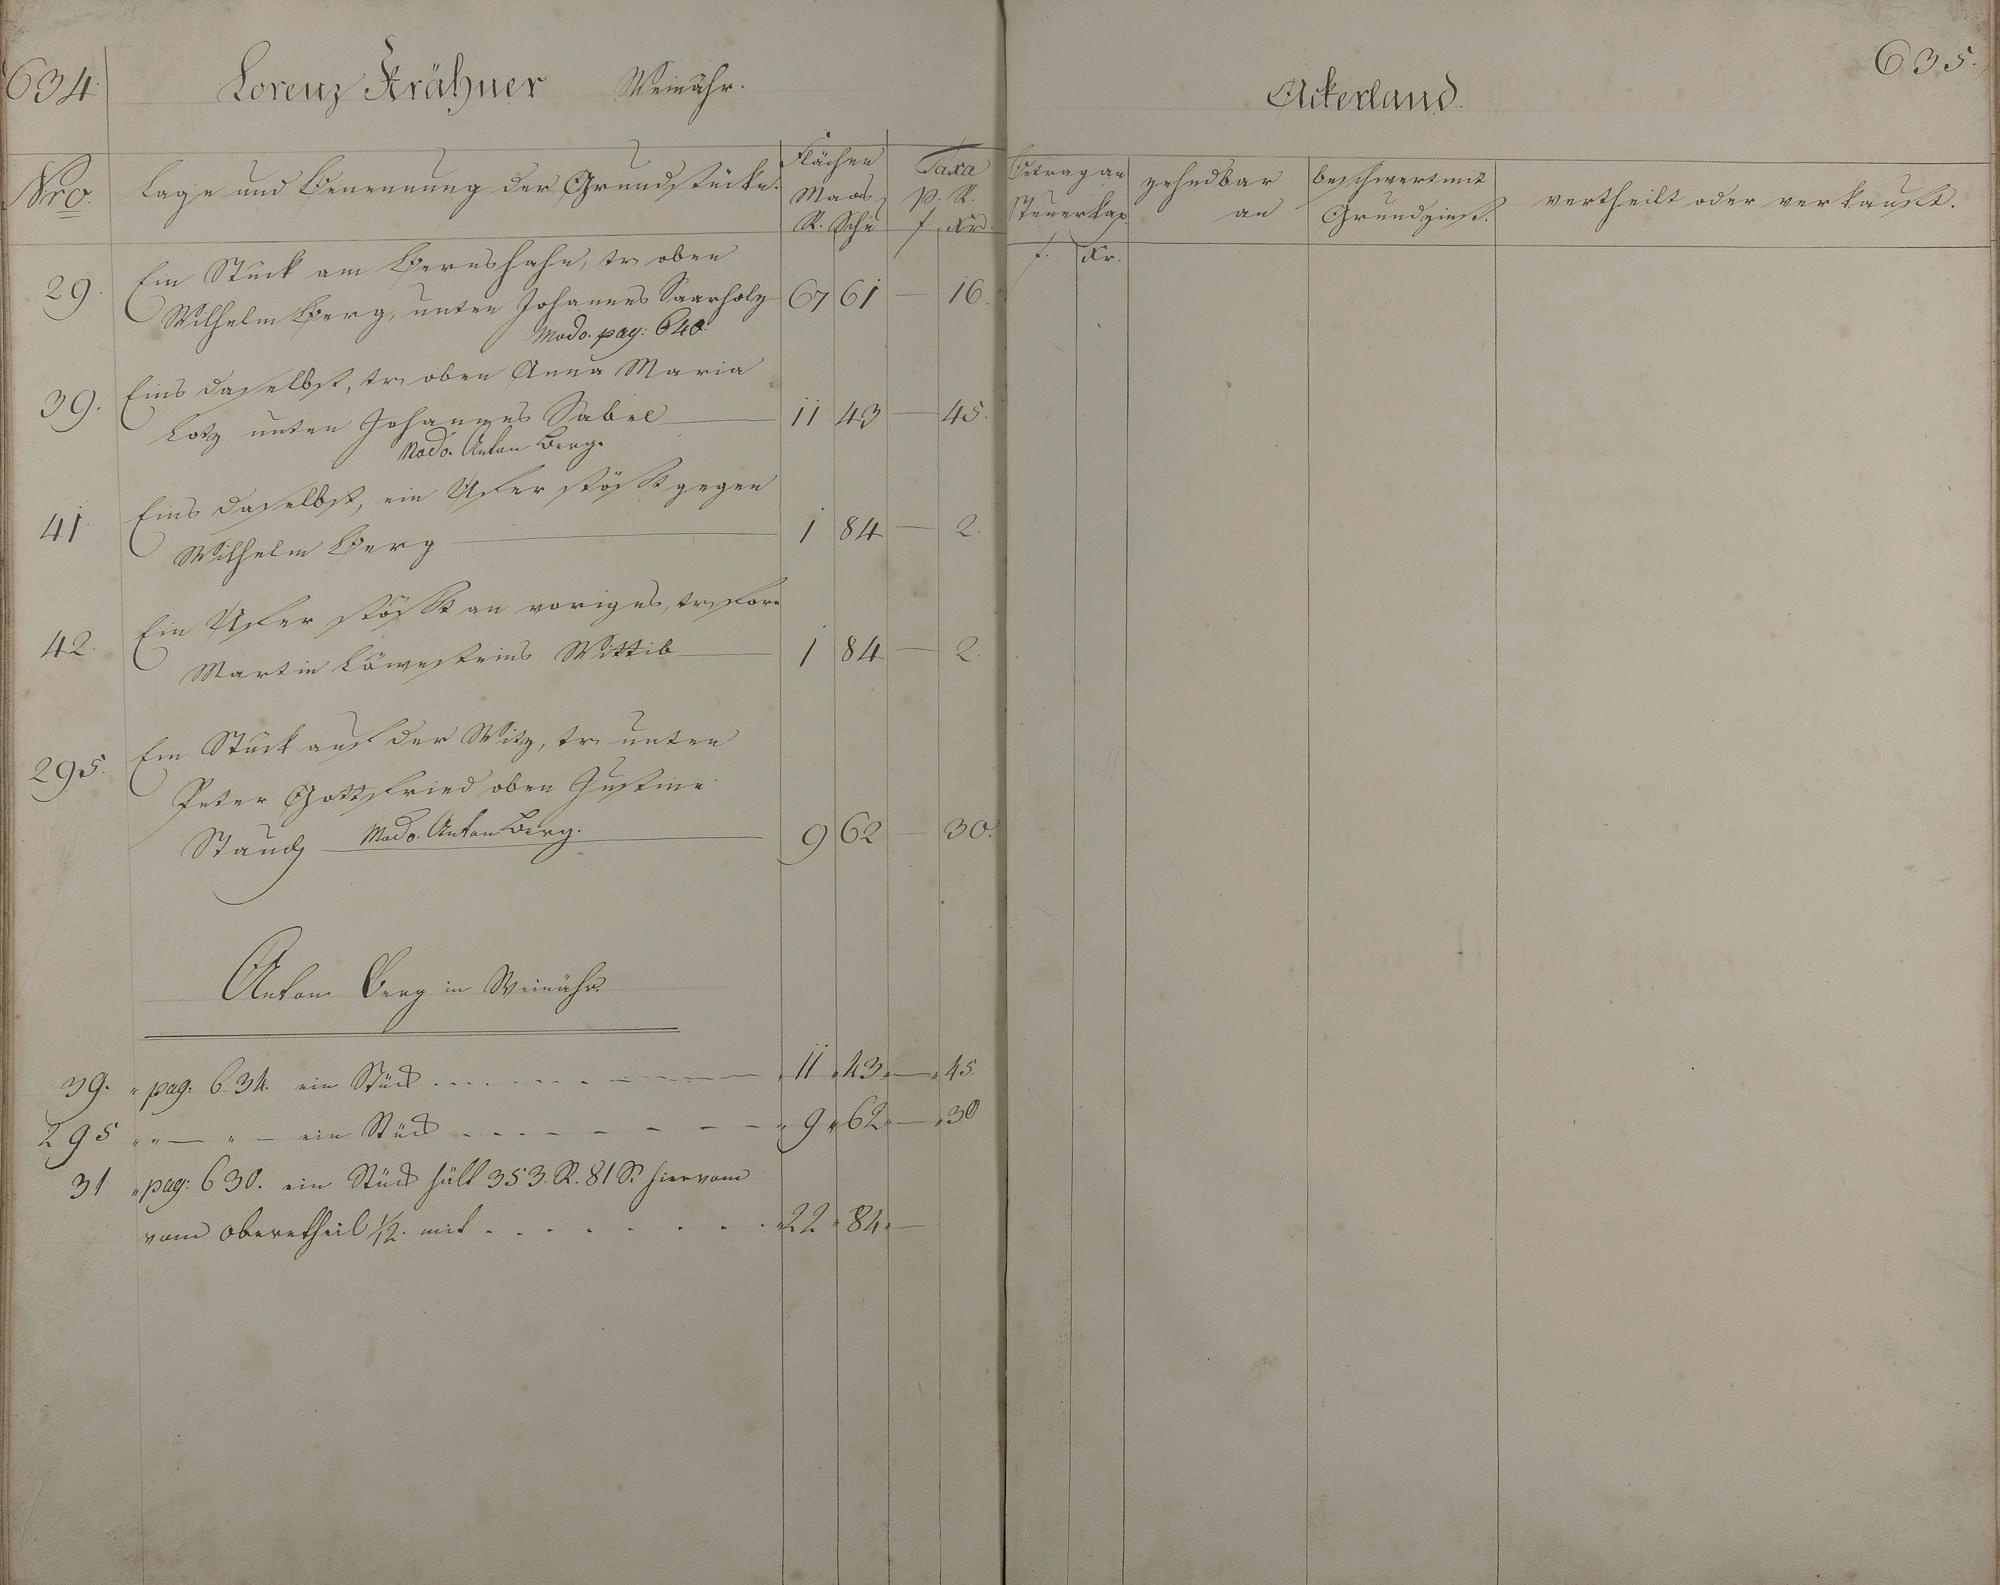 634.
Lorenz Krähner Weinähr.
Ackerland.
635.
Nro.
Lage und Benennung der Grundstücke.
Flächen
Maas,
R. Schu
Taxa
p. R.
f. Kr.
Betrag an
Steuerkap.
f. Kr.
zehndbar
an
beschwert mit
Grundzinß.
vertheilt oder verkauft.
29. Ein Stück am Bernshahn, tr. oben
Wilhelm Berg, unten Johannes Saarholz 67 61 — 16.
Modo. pag: 640.
39. Eins daselbst, tr. oben Anna Maria
Lotz unten Johannes Sabel — 11 43 — 45.
Modo. Anton Berg.
41. Eins daselbst, ein Ufer stößt gegen
Wilhelm Berg — 1 84 — 2.
42. Ein Ufer stößt an voriges, tr.
Martin Löwesteins Wittib — 1 84 — 2.
295. Ein Stück auf der Witz, tr. unten
Peter Gottfried oben Justine
Staud — Modo. Anton Berg. — 9 62 — 30.
Anton Berg in Weinähr.
39. " pag: 634. ein Stück " 11 " 43 " — " 45
295 " " — " — ein Stück " 9 " 62 " — " 30
31 " pag: 630. ein Stück hält 353. R. 81 S. hiervom
vom oberetheil 1/2. mit " 22 " 84 " —